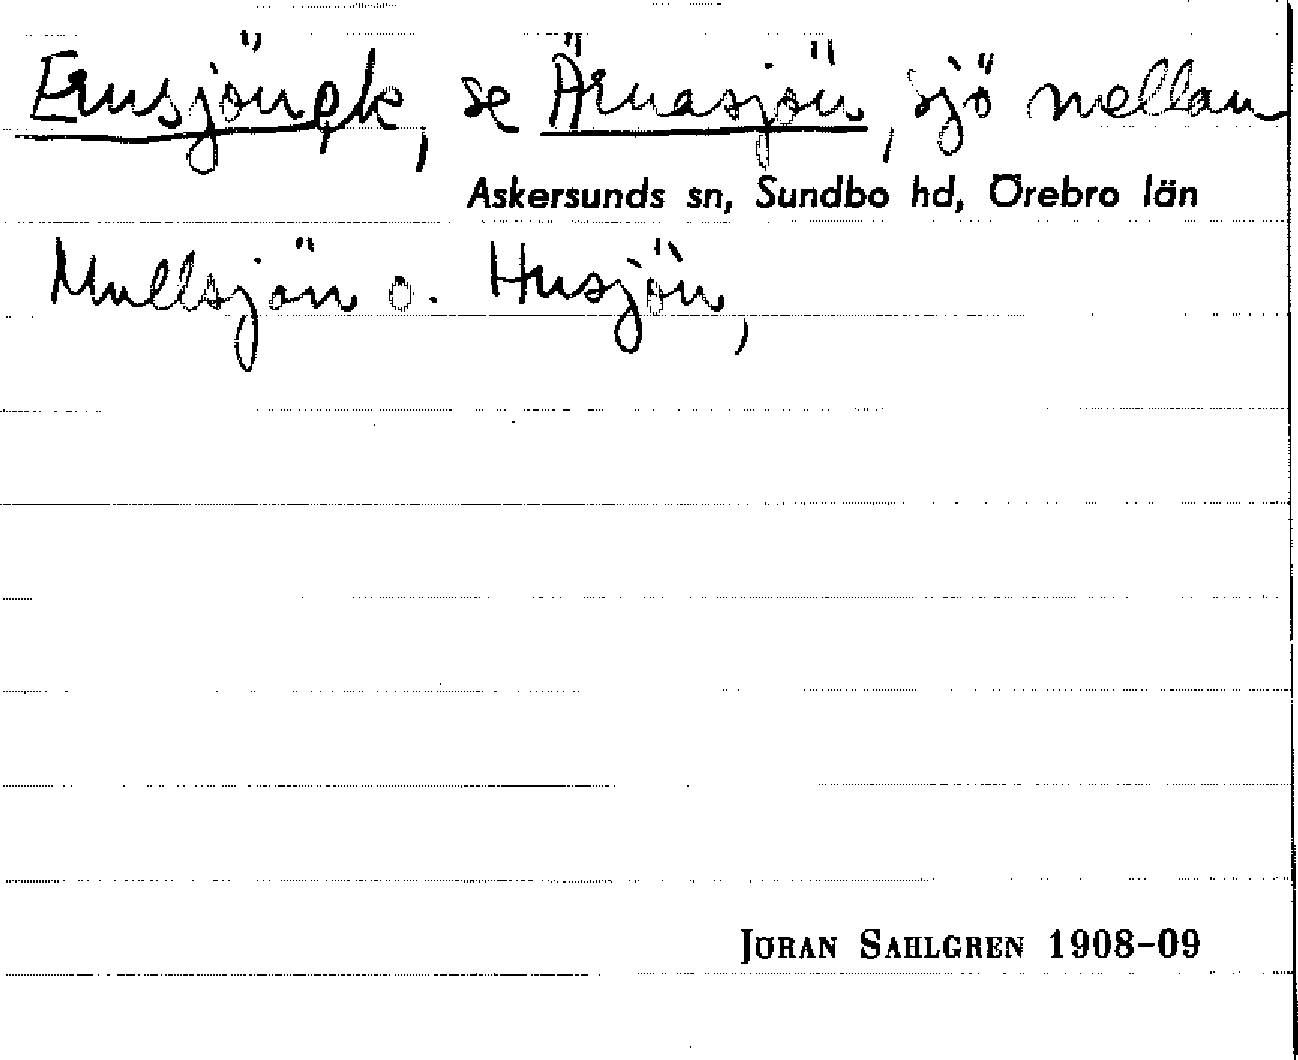 Ernsjön ek, se Ärnasjön, sjö mellan
Askersunds sn, Sundbo hd, Örebro län
Mullsjön o. Husjön,
JÖRAN SAHLGREN 1908-09